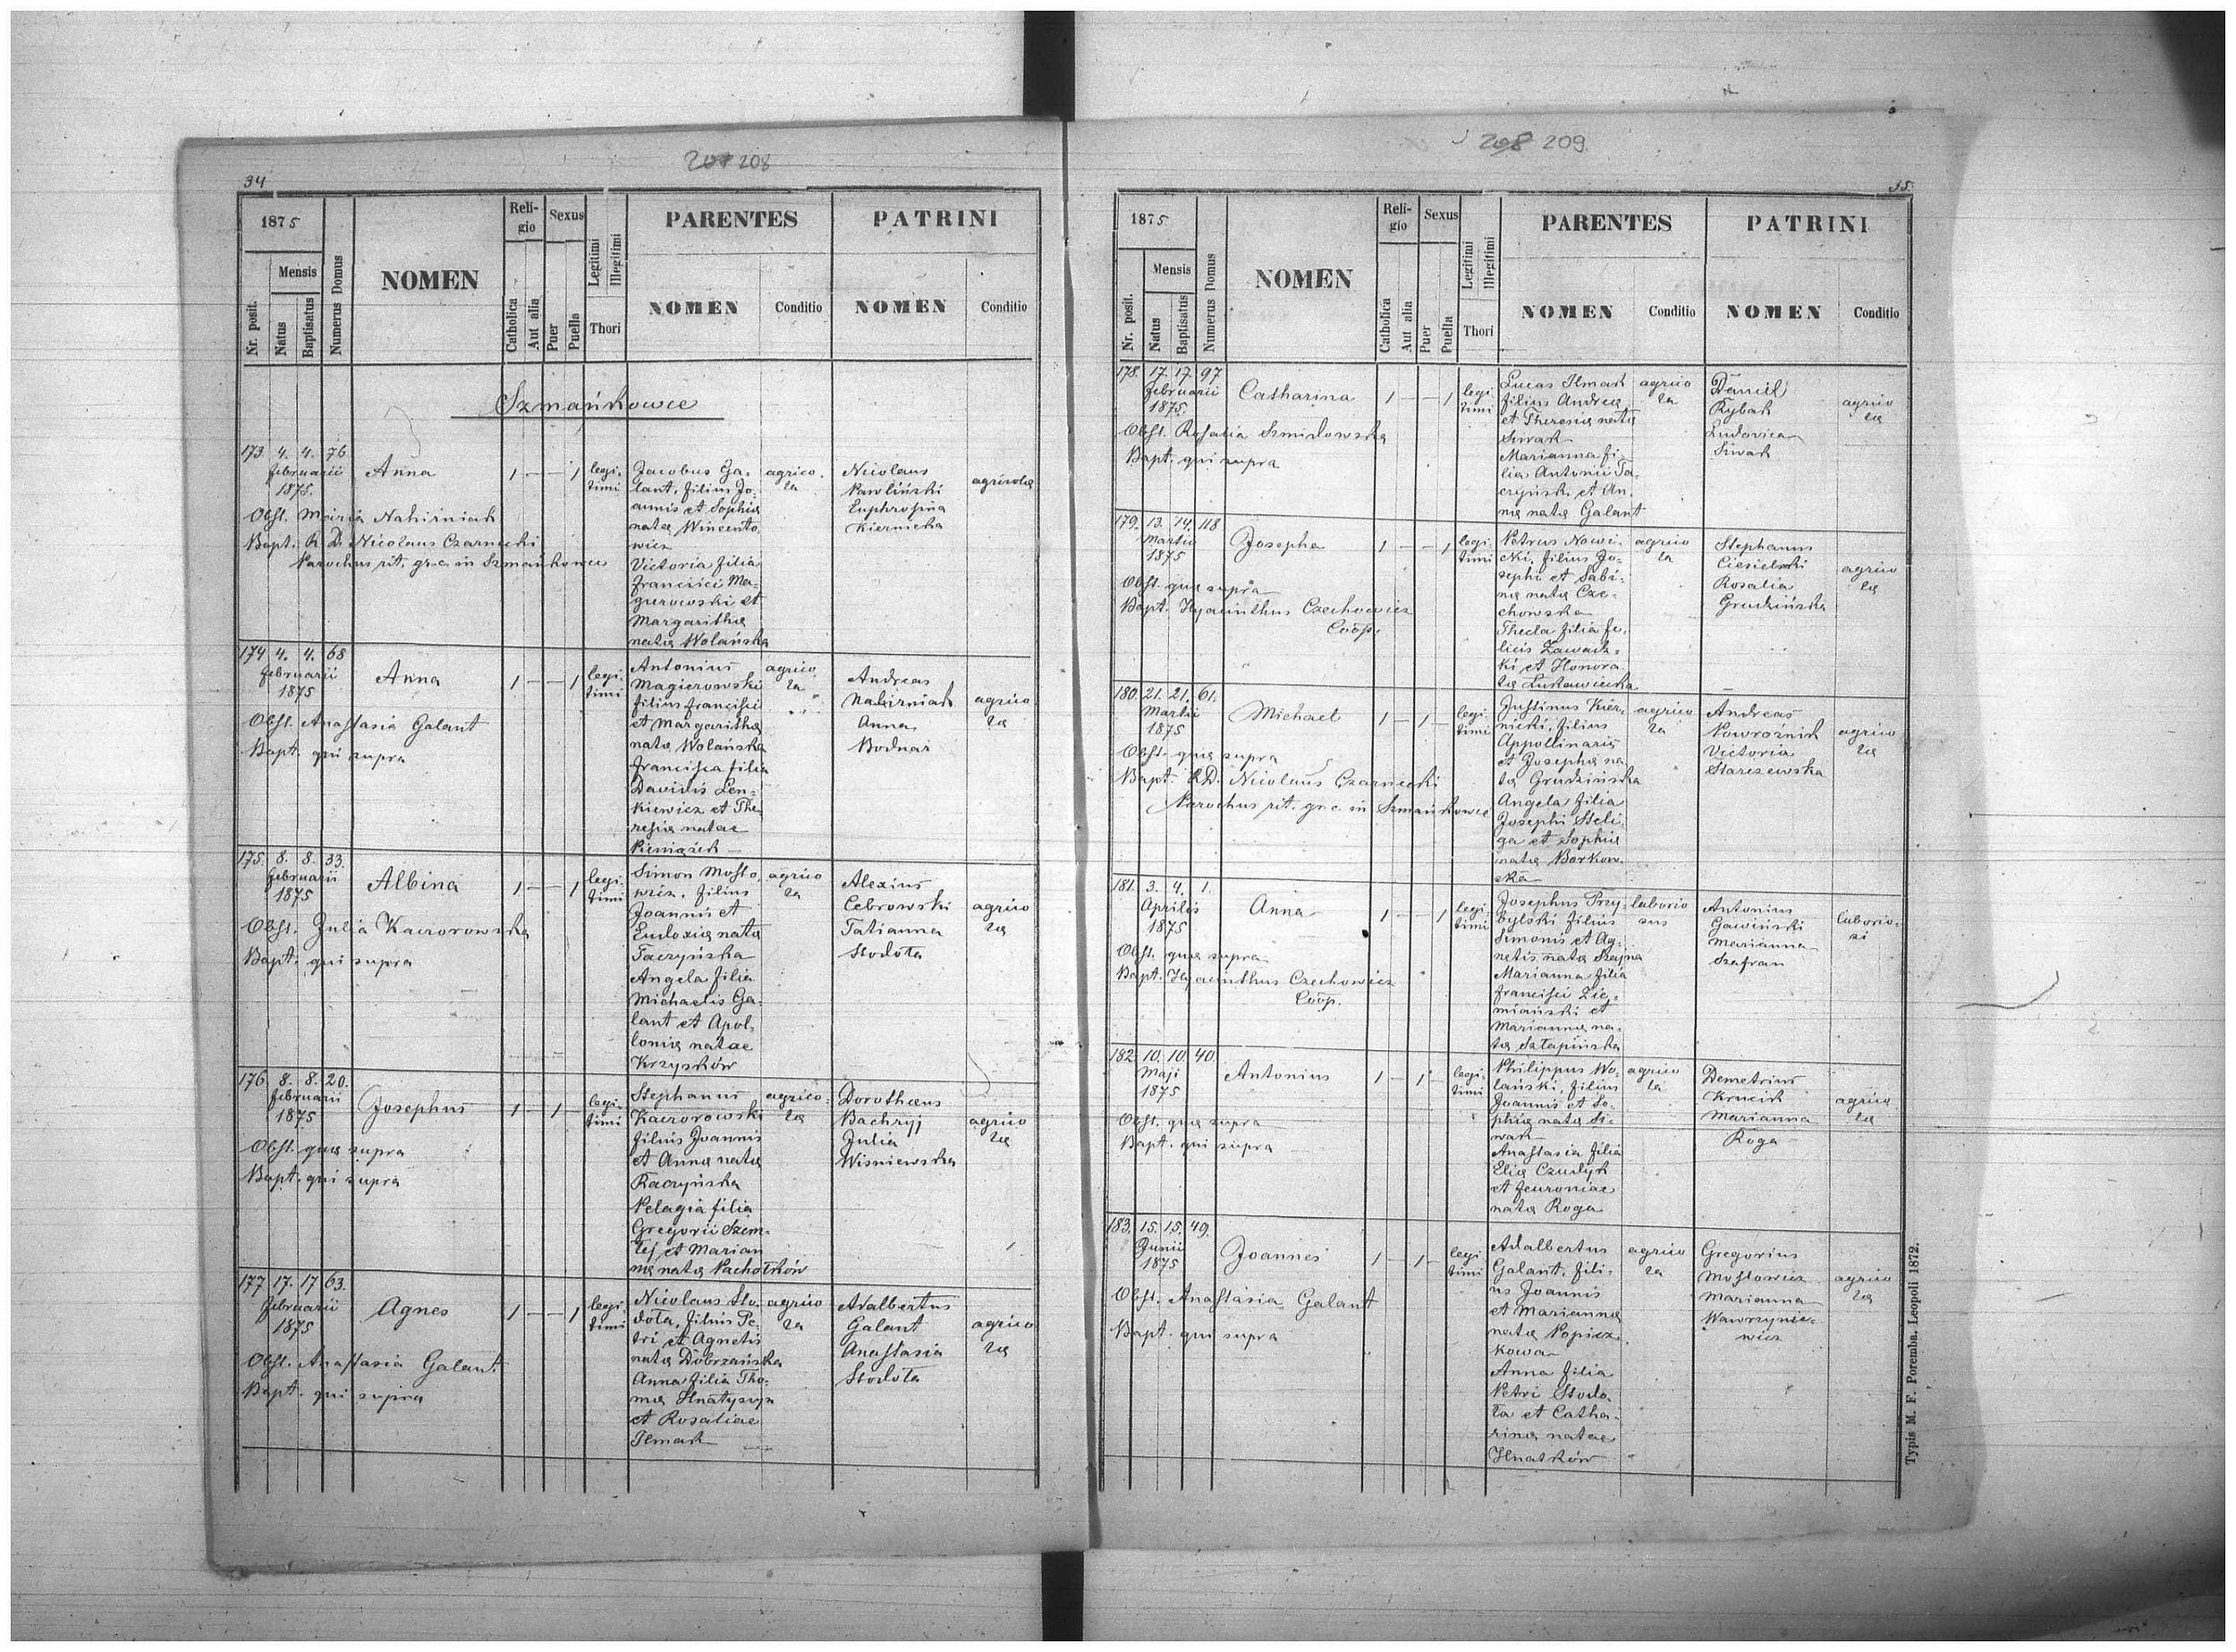 34
201 208
1875
Nr. posit.
Mensis
Natus
Baptisatus
Numerus Domus
NOMEN
Religio
Catholica
Aut alia
Sexus
Puer
Puella
Legitimi
Illegitimi
Thori
PARENTES
NOMEN
Conditio
PATRINI
NOMEN
Conditio
Szmańkowce
173. 4. 4. 76
Februarii
1875.
Anna
1 — — 1
legi-
timi
Obst. Maria Nahirniak
Bapt. R. D. Nicolaus Czarnecki
Parochus rit. gr. c. in Szmańkowce
Jacobus Ga-
lant, filius Jo-
annis et Sophia
nata Wincento-
wicz
Victoria filia
Francisci Ma-
gierowski et
Margaritha
nata Wolańska
agrico-
la
Nicolaus
Pawliński
Euphrosina
Kiernicka
agricola
174 4. 4. 68
Februarii
1875
Anna
1 — — 1
legi-
timi
Obst. Anastasia Galant
Bapt. qui supra
Antonius
Magierowski
filius Francisci
et Margaritha
nata Wolańska
Francisca filia
Davidis Len-
kiewicz et The-
resia natae
Pieniążek
agrico
la
Andreas
Nahirniak
Anna
Bodnar
agrico
la
175. 8. 8. 33.
Februarii
1875
Albina
1 — — 1
legi-
timi
Obst. Julia Kaczorowska
Bapt. qui supra
Simon Mosto-
wicz, filius
Joannis et
Eudoxia nata
Taczyńska
Angela filia
Michaelis Ga-
lant et Apol-
lonia natae
Krzysków
agrico
la
Alexius
Cebrowski
Tatianna
Stodoła
agrico
la
176 8. 8. 20.
Februarii
1875
Josephus
1 — 1 —
legi-
timi
Obst. qua supra
Bapt. qui supra
Stephanus
Kaczorowski
filius Joannis
et Anna nata
Raczyńska
Pelagia filia
Gregorii Szem-
lej et Marian
na nata Pachołków
agrico-
la
Dorotheus
Bachryj
Julia
Wiśniewska
agrico
la
177 17. 17 63.
Februarii
1875
Agnes
1 — — 1
legi-
timi
Obst. Anastasia Galant
Bapt. qui supra
Nicolaus Sto-
doła, filius Pe-
tri et Agnetis
nata Dobrzańska
Anna filia Tho-
ma Hnatyszyn
et Rosaliae
Ilmak
agrico
la
Adalbertus
Galant
Anastasia
Stodoła
agrico
la
208 209
35.
1875
Nr. posit.
Mensis
Natus
Baptisatus
Numerus Domus
NOMEN
Religio
Catholica
Aut alia
Sexus
Puer
Puella
Legitimi
Illegitimi
Thori
PARENTES
NOMEN
Conditio
PATRINI
NOMEN
Conditio
178. 17. 17. 97
Februarii
1875.
Catharina
1 — — 1
legi-
timi
Obst. Rosalia Szmidowska
Bapt. qui supra
Lucas Ilmak
filius Andrea
et Theresia nata
Siwak
Marianna fi-
lia Antonii Ta-
czyńsk. et An-
na nata Galant
agrico
la
Daniel
Rybak
Ludovica
Siwak
agrico
la
179. 13. 14. 118
Martii
1875
Josepha
1 — — 1
legi-
timi
Obst. qua supra
Bapt. Hyacinthus Czechowicz
Coop.
Petrus Nowi-
cki, filius Jo-
sephi et Sabi-
na nata Cze-
chowska
Thecla filia Fe-
licis Zawadz-
ki et Honora-
ta Łukawiecka
agrico
la
Stephanus
Ciesielski
Rosalia
Grudzińska
agrico
la
180. 21. 21. 61.
Martii
1875
Michael
1 — 1 —
legi-
timi
Obst. qua supra
Bapt. R.D. Nicolaus Czarnecki
Parochus rit. gr. c. in Szmańkowce
Justinus Kier-
nicki, filius
Appollinaris
et Josepha na-
ta Grudzińska
Angela filia
Josephi Steli-
ga et Sophia
nata Borkow-
ska
agrico
la
Andreas
Nowrozniak
Victoria
Starzewska
agrico
la
181. 3. 4. 1.
Aprilis
1875
Anna
1 — — 1
legi-
timi
Obst. qua supra
Bapt. Hyacinthus Czechowicz
Coop.
Josephus Przy-
bylski filius
Simonis et Ag-
netis nata Szajna
Marianna filia
Francisci Zie-
miański et
Marianna na-
ta Szłapińska
laborio
sus
Antonius
Gawiński
Marianna
Szafran
laborio-
si
182. 10. 10. 40.
Maji
1875
Antonius
1 — 1 —
legi-
timi
Obst. qua supra
Bapt. qui supra
Philippus Wo-
lański, filius
Joannis et So-
phia nata Si-
wak
Anastasia filia
Elia Czudyk
et Feuroniae
nata Roga
agrico
la
Demetrius
Kruczk
Marianna
Roga
agrico
la
183. 15. 15. 49.
Junii
1875
Joannes
1 — 1 —
legi-
timi
Obst. Anastasia Galant
Bapt. qui supra
Adalbertus
Galant, fili-
us Joannis
et Marianna
nata Popicz-
kowa
Anna filia
Petri Stodo-
ła et Catha-
rina natae
Hnatków
agrico
la
Gregorius
Mostowicz
Marianna
Wawrzynie-
wicz
agrico
la
Typis M. F. Poremba. Leopoli 1872.